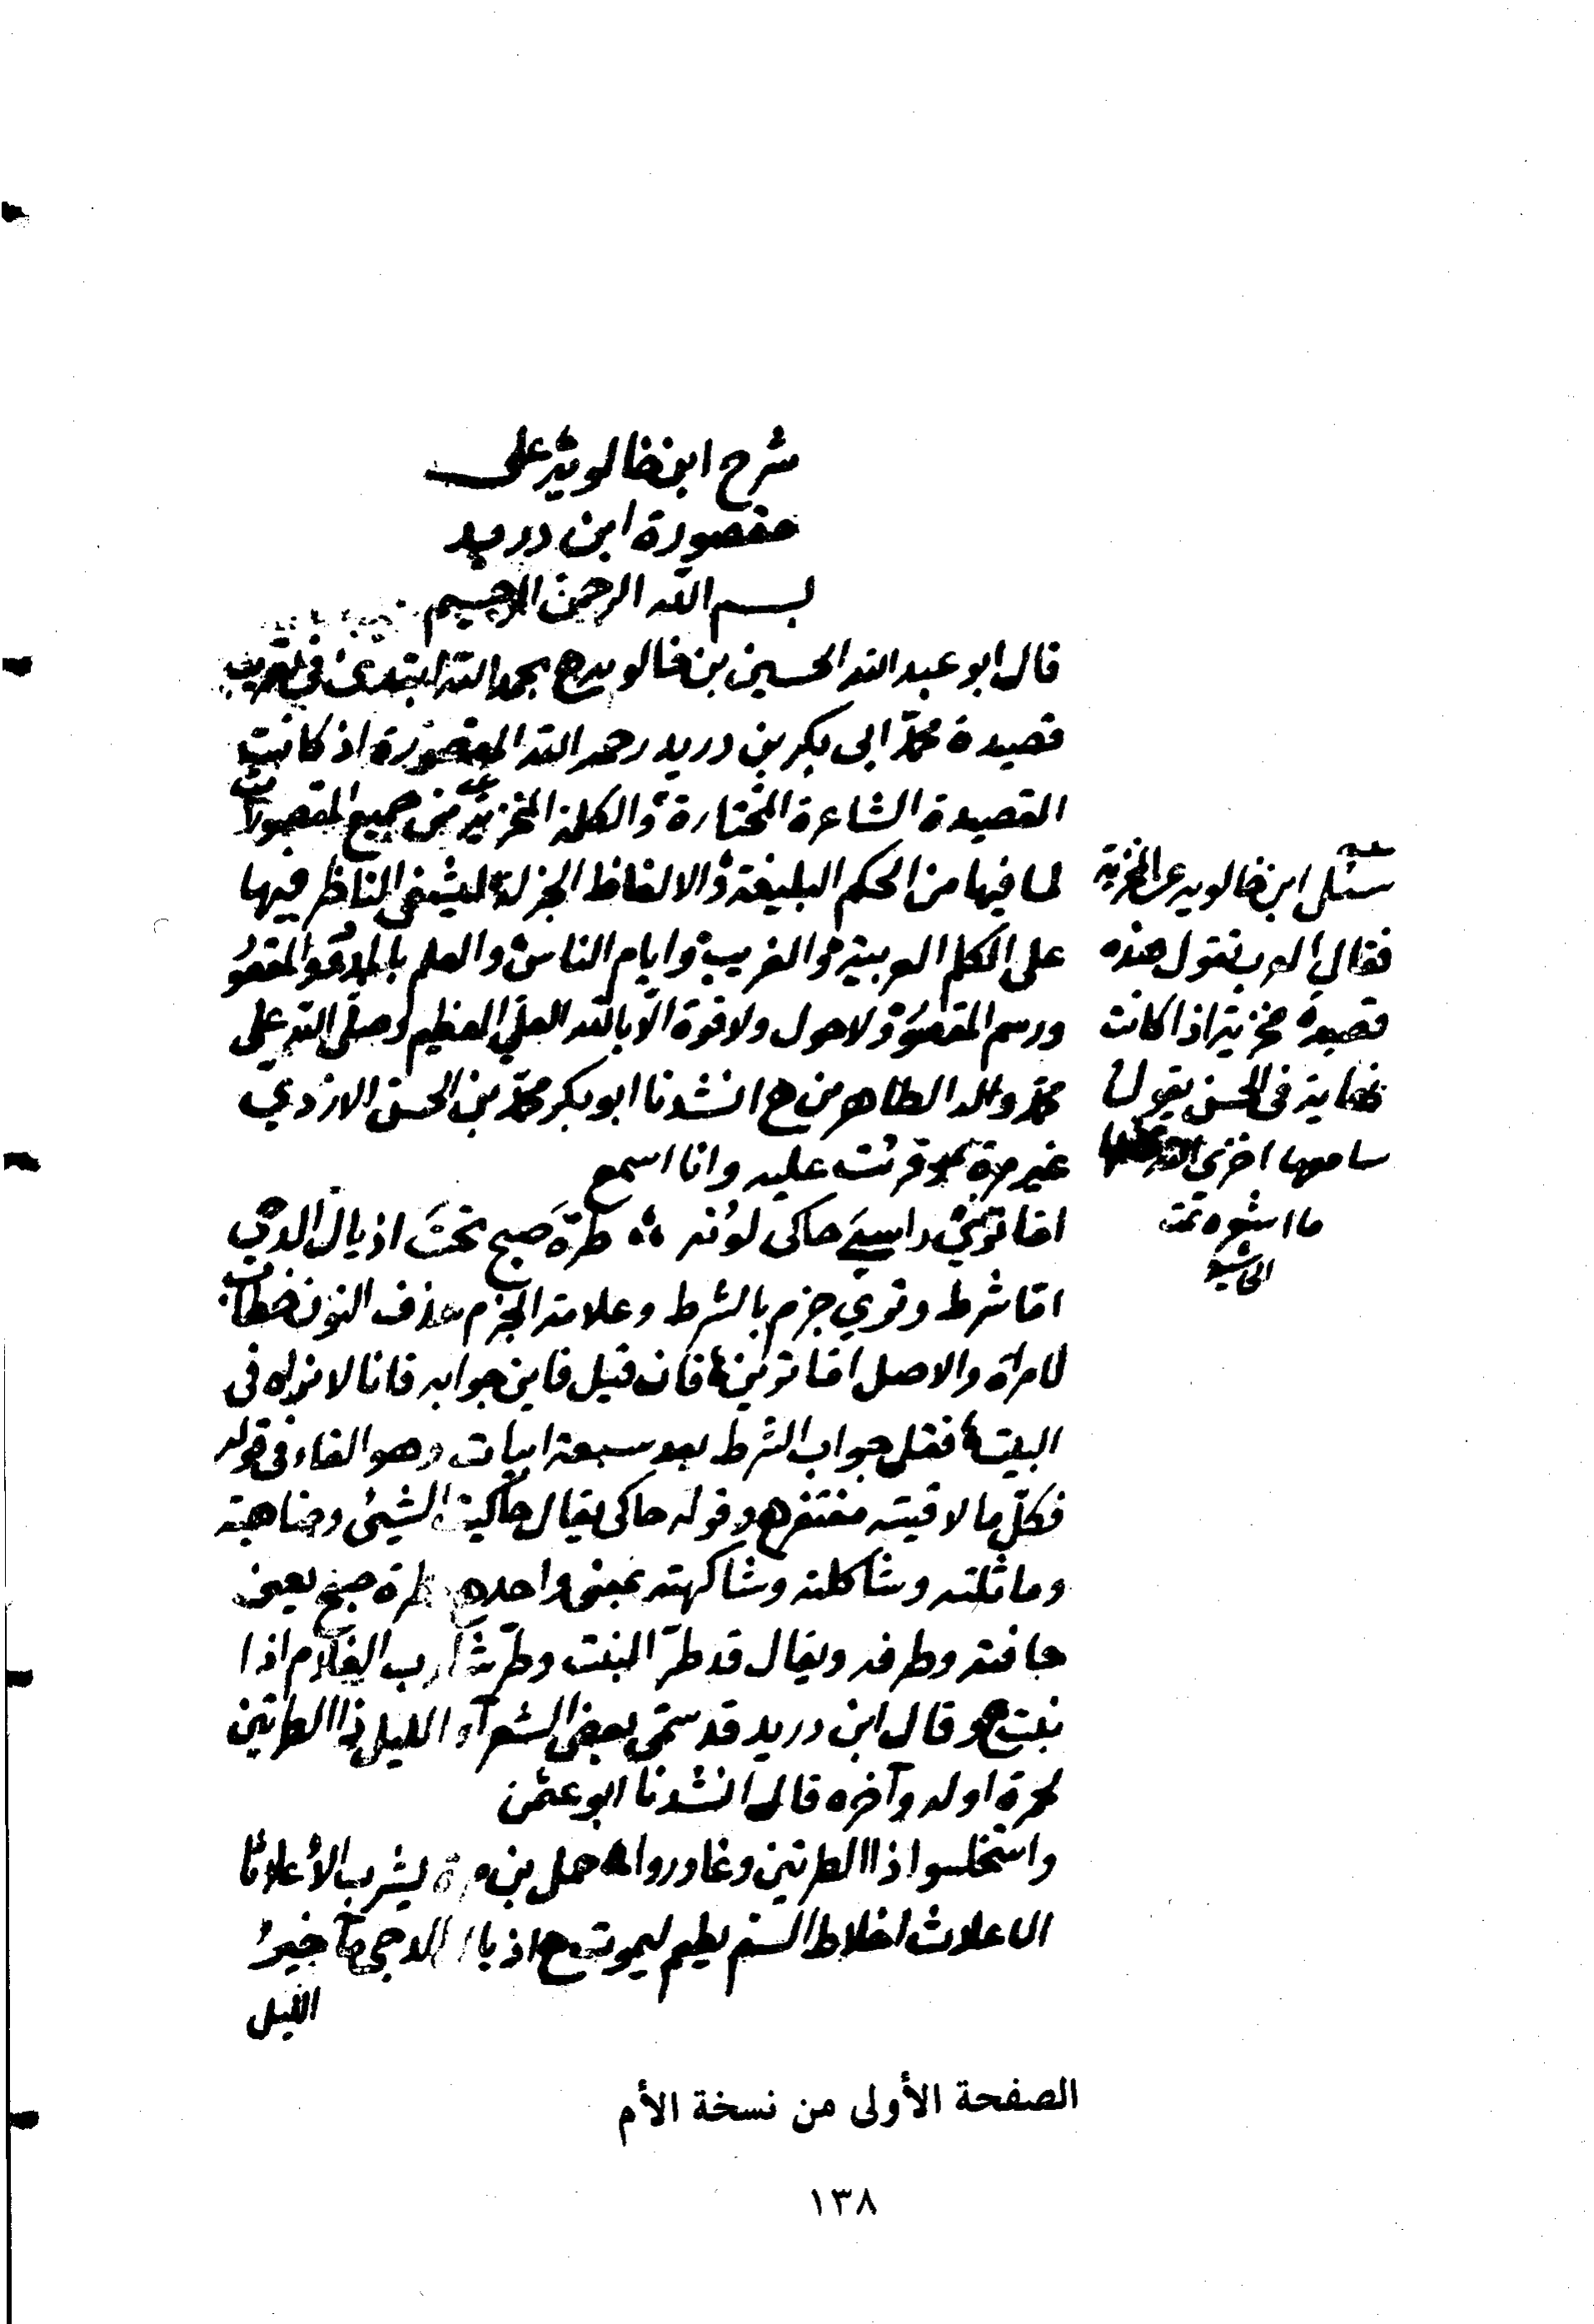 شرح ابن خالويه على
مقصورة ابن دريد
بسم الله الرحمن الرحيم
قال ابو عبد الله الحسين بن خالويه بحمد الله ابتدئ فى
قصيدة محمد ابى بكر بن دريد رحمه الله المقصورة اذ كانت
القصيدة الشاعرة المختارة والكلمة المخزية من جميع المقصورات
لما فيها من الحكم البليغة والالفاظ الجزلة الناظر فيها
على الكلم العربية والغريب وايام الناس والعلم بالممدود والمقصور
ورسم المقصور ولا حول ولا قوة الا بالله العلي العظيم وصلى الله على
محمد واله الطاهرين ح انشدنا ابو بكر محمد بن الحسن الازدي
غير مرة قرئت عليه وانا اسمع
اما ترى راسي حاكى لونه طرة صبح تحت اذيال الدجى
اما شرط وتري جزم بالشرط وعلامة الجزم حذف النون خطاب
لامراة والاصل اما ترين فان قيل فاين جوابه فانا لا نراه فى
البيت فقل جواب الشرط بعد سبعة ابيات وهو الفاء فى قوله
فكل ما لاقيته مغتفر ح وقوله حاكى يقال حاكيت الشيئ وضاهيته
وماثلته وشاكلته وشاكهته بمعنى واحد ح طرة صبح يعنى
حافته وطرفه ويقال قد طر النبت وطر شارب الغلام اذا
نبت ح وقال ابن دريد قد سمى بعض الشعرآء الليل ذا الطرتين
لحمرة اوله وآخره قال انشدنا ابو عثمن
واستخلسوا ذا الطرتين وغادروا حمل بن مرة يشرب الأعلاثا
الاعلاث اخلاط السم يطعم ليموت ح اذيال الدجى مآخير
الليل
سئل ابن خالويه عن المخزية
فقال العرب تقول هذه
قصيدة مخزية اذا كانت
نهاية فى الحسن يقول
سامعها اخزى الله
ما اشعره تمت
الحاشية
الصفحة الأولى من نسخة الأم
١٣٨